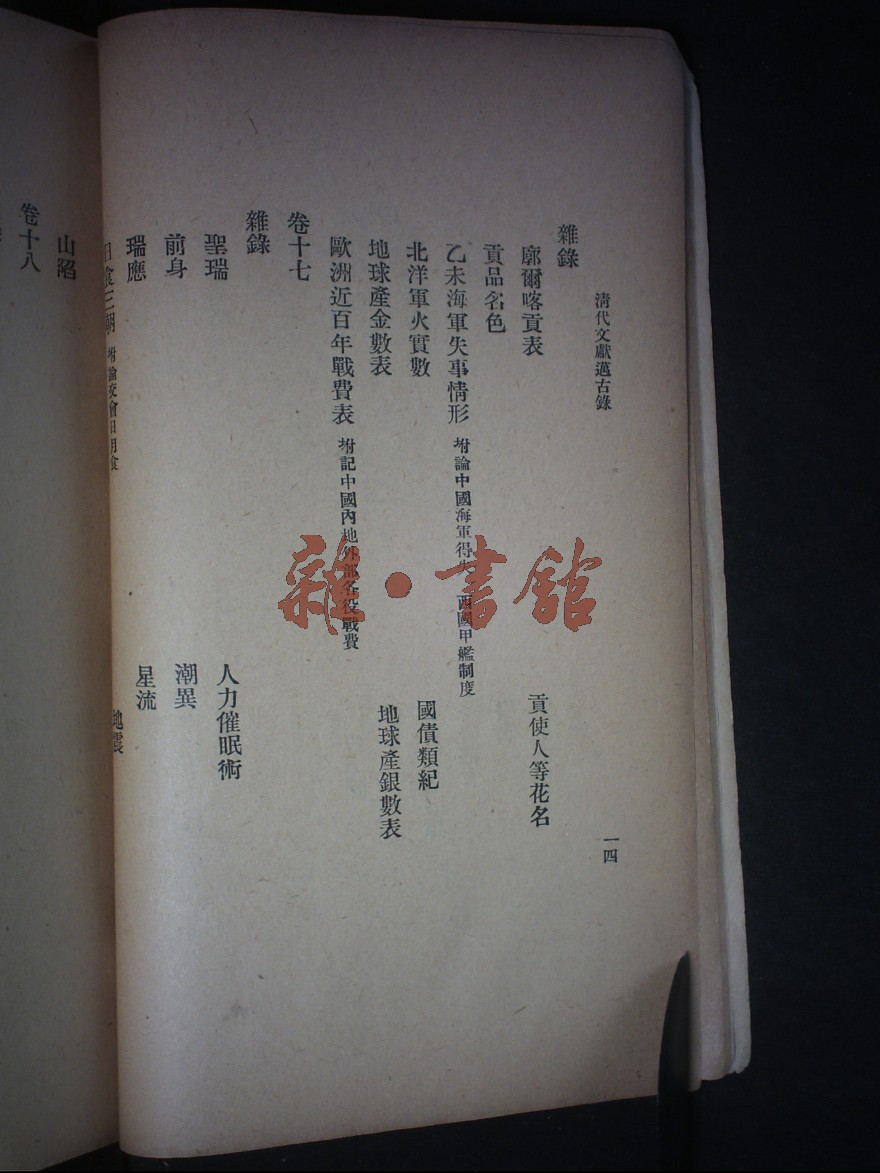 清代文獻邁古錄
一四
雜錄
廓爾喀貢表
貢使人等花名
貢品名色
乙未海軍失事情形 坿論中國海軍得失 西國甲艦制度
北洋軍火實數
國債類紀
地球產金數表
地球產銀數表
歐洲近百年戰費表 坿記中國內地外部各役戰費
卷十七
雜錄
聖瑞
人力催眠術
前身
潮異
瑞應
星流
日食三朝 坿論交會日月食
地震
山陷
卷十八
雜·書館